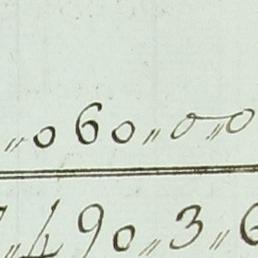 〃060〃0〃0
〃490〃3〃6